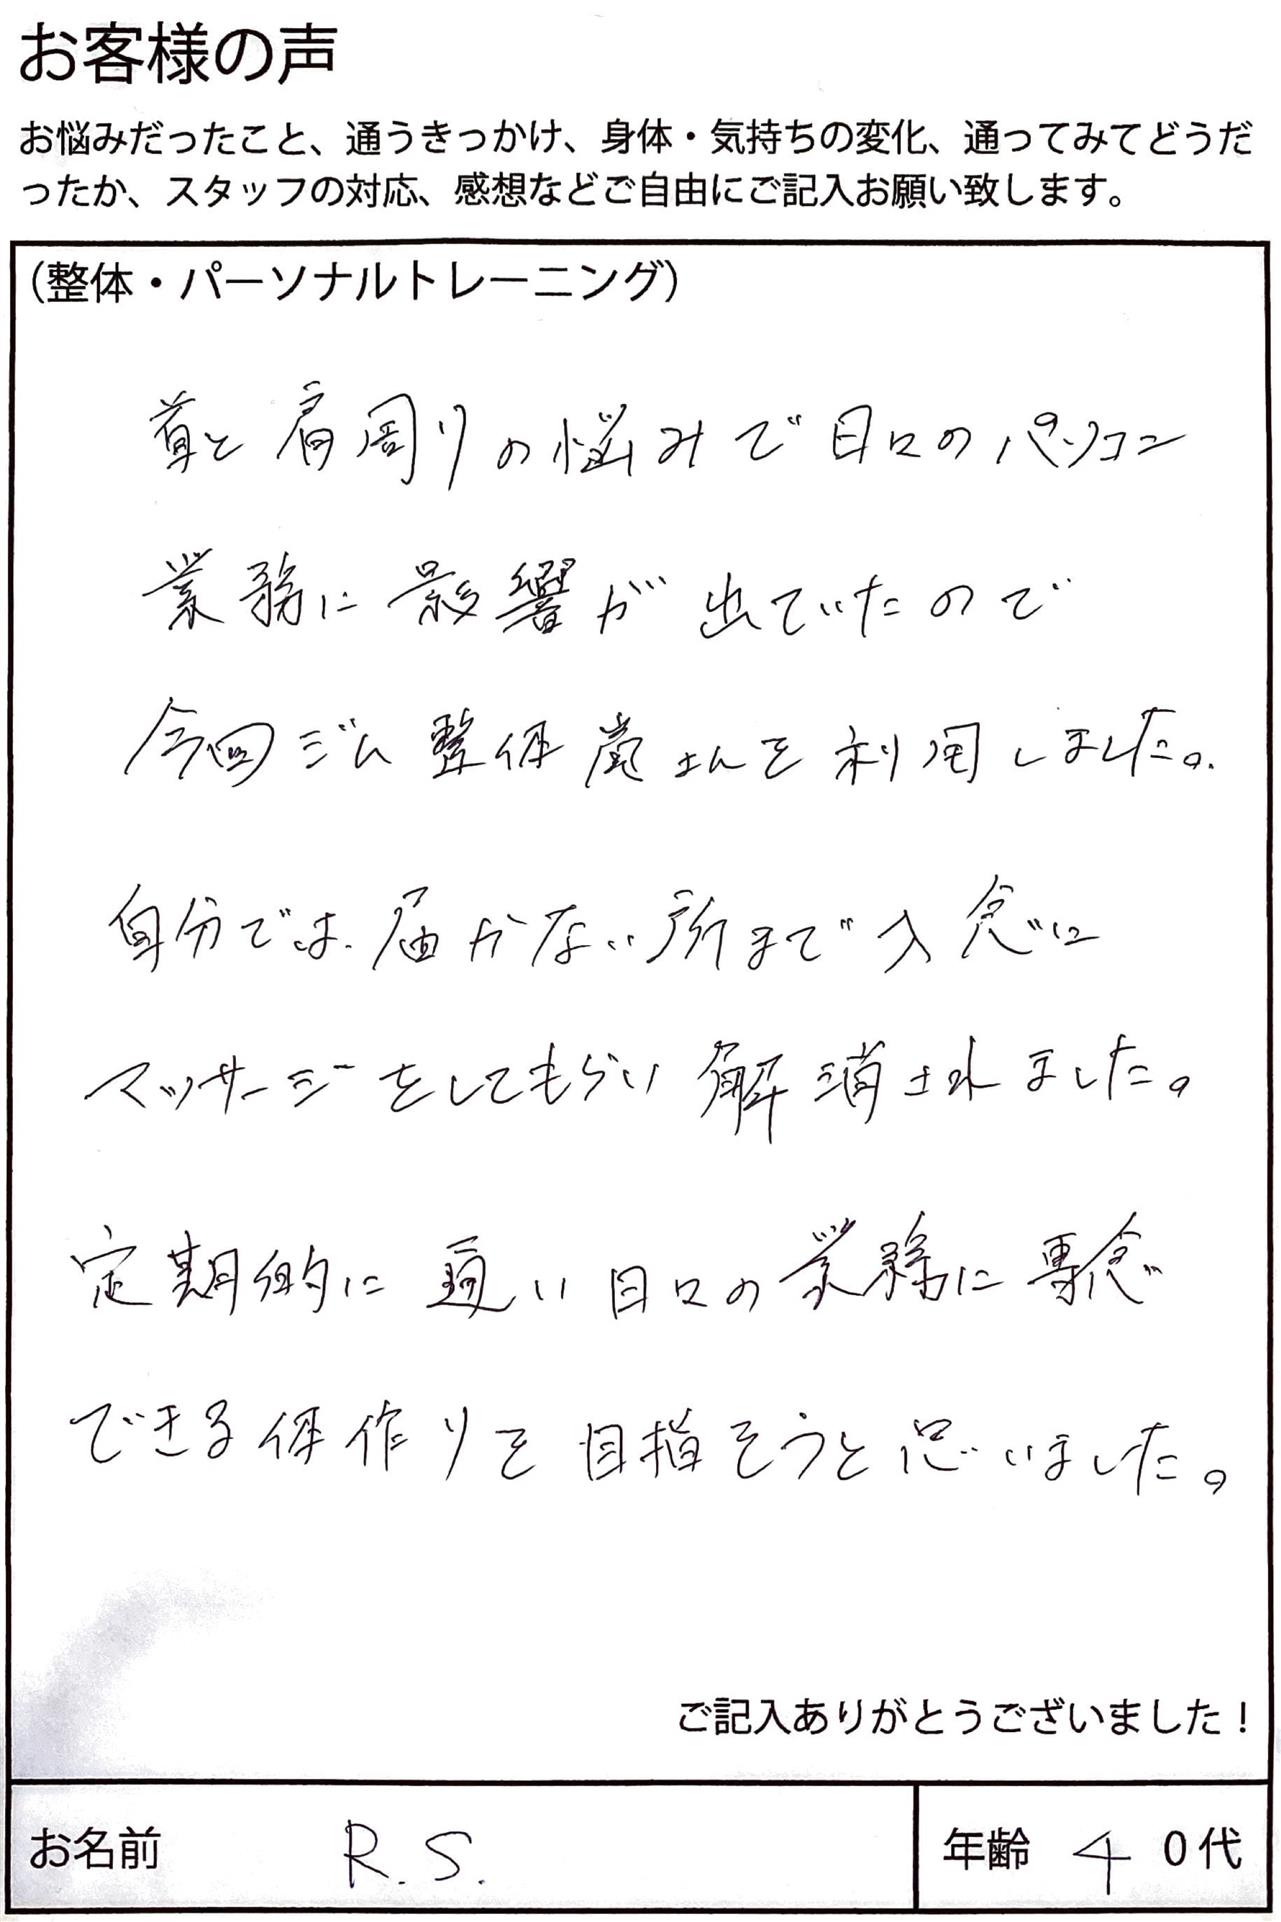 お客様の声
お悩みだったこと、通うきっかけ、身体・気持ちの変化、通ってみてどうだ
ったか、スタッフの対応、感想などご自由にご記入お願い致します。
（整体・パーソナルトレーニング）
首と肩周りの悩みで日々のパソコン
業務に影響が出ていたので
今回ジム整体嵐さんを利用しました。
自分では届かない所まで入念に
マッサージをしてもらい解消されました。
定期的に通い日々の業務に専念
できる体作りを目指そうと思いました。
ご記入ありがとうございました！
お名前 R.S.
年齢 40代